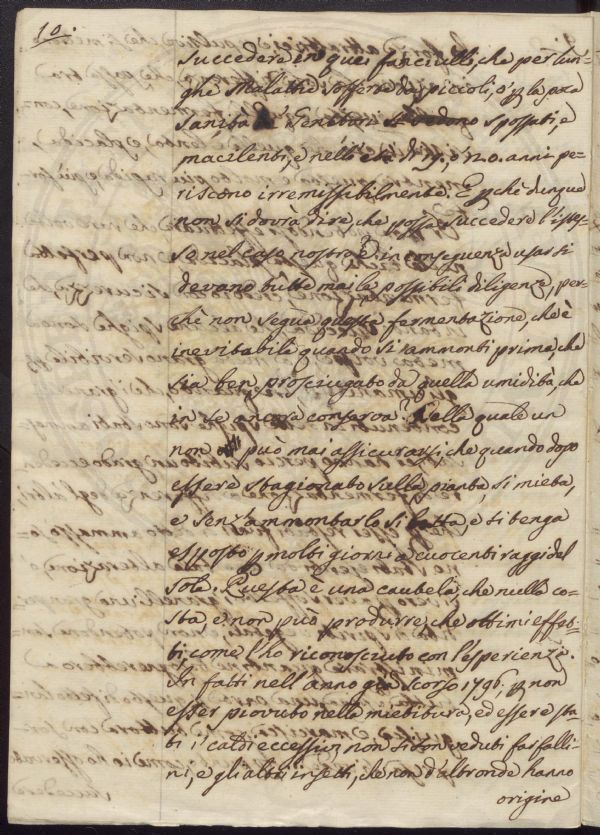 10.
Succedere in quei fanciulli, che per lun-
ghe Malattie sofferte da piccoli, o p la poca
Sanità de' Genitori si vedono spossati, e
macilenti, e nell'età di 19, o 20. anni pe-
riscono irremissibilmente. E pchè dunque
non si dovrà dire, che possa succedere l'istes-
so nel caso nostro? e in conseguenza usar si
devano tutte mai le possibili diligenze, per-
chè non segua questa fermentazione, che è
inevitabile quando si rammonti prima, che
sia ben prosciugato da quella umidità, che
in se ancora conserva? Della quale un
non può mai assicurarsi, che quando dopo
essere stagionato sulla pianta, si mieta,
e senz'ammontarlo si batta, e si tenga
esposto p molti giorni a cuocenti raggi del
Sole. Questa è una cautela, che nulla co-
sta, e non può produrre, che ottimi effet-
ti; come l'ho riconosciuto con l'esperienza.
In fatti nell'anno già scorso 1796, p non
esser piovuto nella mietitura, ed essere sta-
ti i caldi eccessivi, non si son veduti farfalli-
ni, e gli altri insetti, che non d'altronde hanno
origine